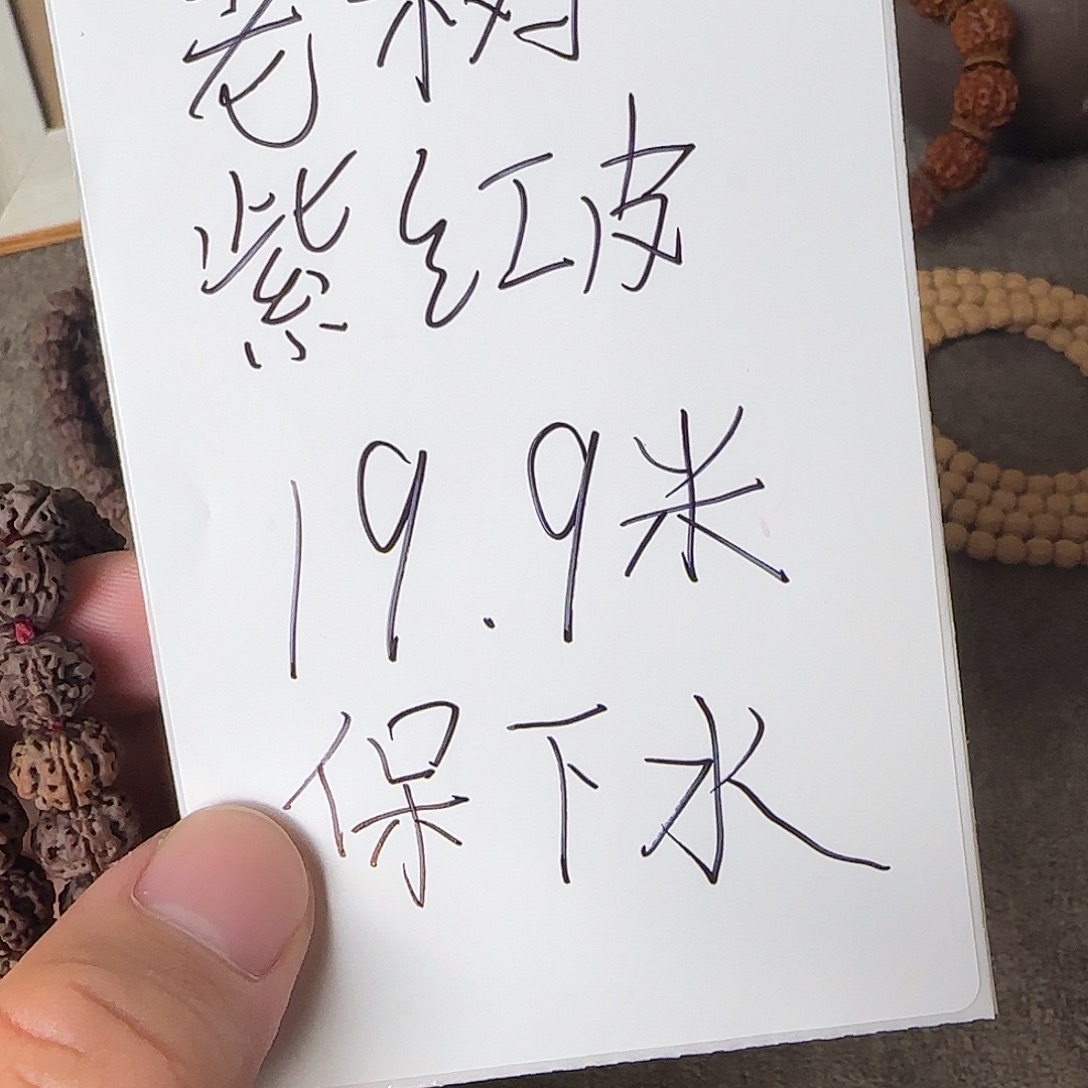 老树
紫红皮
19.9米
保下水